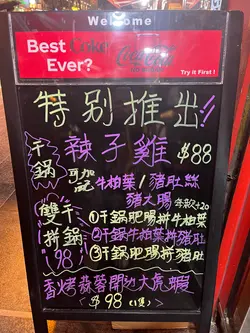 Welcome
Best Coke
Ever?
Coca-Cola
Try It First!
特別推出!!
干鍋
辣子雞 $88
可加配 牛柏葉/豬肚絲
豬大腸 每款+20
雙拼干鍋
98
①干鍋肥腸拼牛柏葉
②干鍋牛柏葉拼豬肚
③干鍋肥腸拼豬肚
香烤蒜蓉開边大虎蝦
<$98 (1隻)>